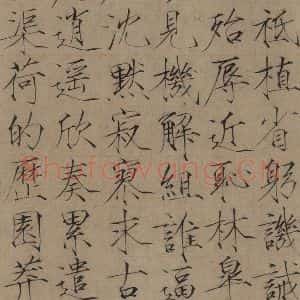 祗植省躬譏誡
殆辱近恥林皋
見機解組誰逼
沈默寂寥求古
逍遥欣奏累遣
渠荷的歷園莽